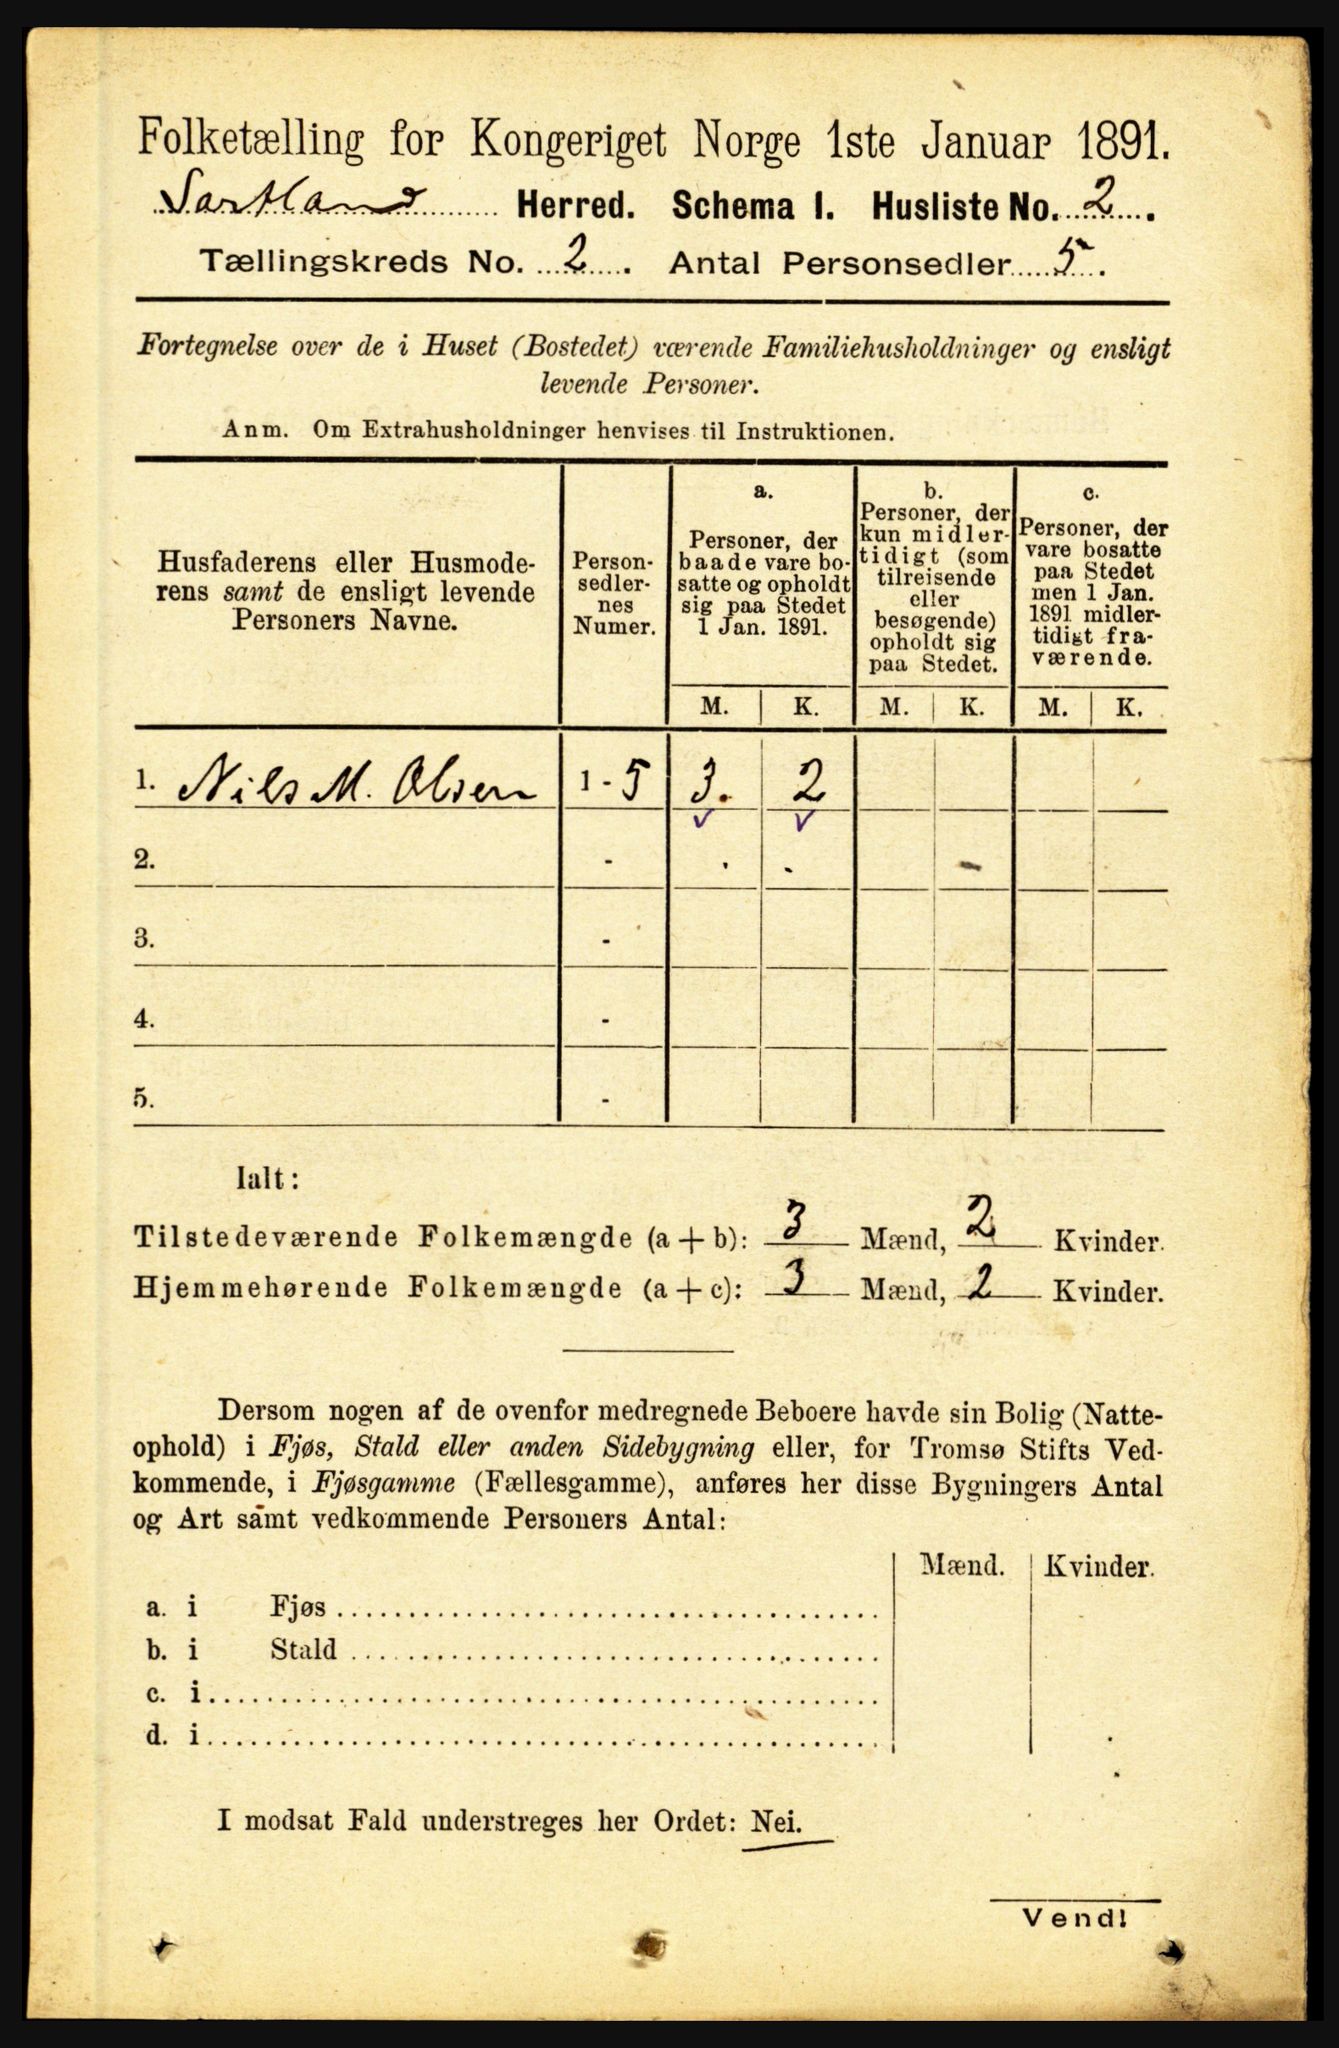 Folketælling for Kongeriget Norge 1ste Januar 1891.
Sortland Herred. Schema I. Husliste No. 2.
Tællingskreds No. 2. Antal Personsedler 5.
Fortegnelse over de i Huset (Bostedet) værende Familiehusholdninger og ensligt
levende Personer.
Anm. Om Extrahusholdninger henvises til Instruktionen.
Husfaderens eller Husmode-
rens samt de ensligt levende
Personers Navne.
Person-
sedler-
nes
Numer.
a.
Personer, der
baade vare bo-
satte og opholdt
sig paa Stedet
1 Jan. 1891.
b.
Personer, der
kun midler-
tidigt (som
tilreisende
eller
besøgende)
opholdt sig
paa Stedet.
c.
Personer, der
vare bosatte
paa Stedet
men 1 Jan.
1891 midler-
tidigt fra-
værende.
M. K. M. K. M. K.
1. Nils M. Olsen 1 - 5 3. 2
2. -
3. -
4. -
5. -
Ialt:
Tilstedeværende Folkemængde (a + b): 3 Mænd, 2 Kvinder.
Hjemmehørende Folkemængde (a + c): 3 Mænd, 2 Kvinder.
Dersom nogen af de ovenfor medregnede Beboere havde sin Bolig (Natte-
ophold) i Fjøs, Stald eller anden Sidebygning eller, for Tromsø Stifts Ved-
kommende, i Fjøsgamme (Fællesgamme), anføres her disse Bygningers Antal
og Art samt vedkommende Personers Antal:
Mænd. Kvinder.
a. i Fjøs
b. i Stald
c. i
d. i
I modsat Fald understreges her Ordet: Nei.
Vend!